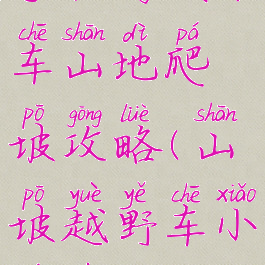 chē shān dì pá
车山地爬
pō gōng lüè shān
坡攻略(山
pō yuè yě chē xiǎo
坡越野车小